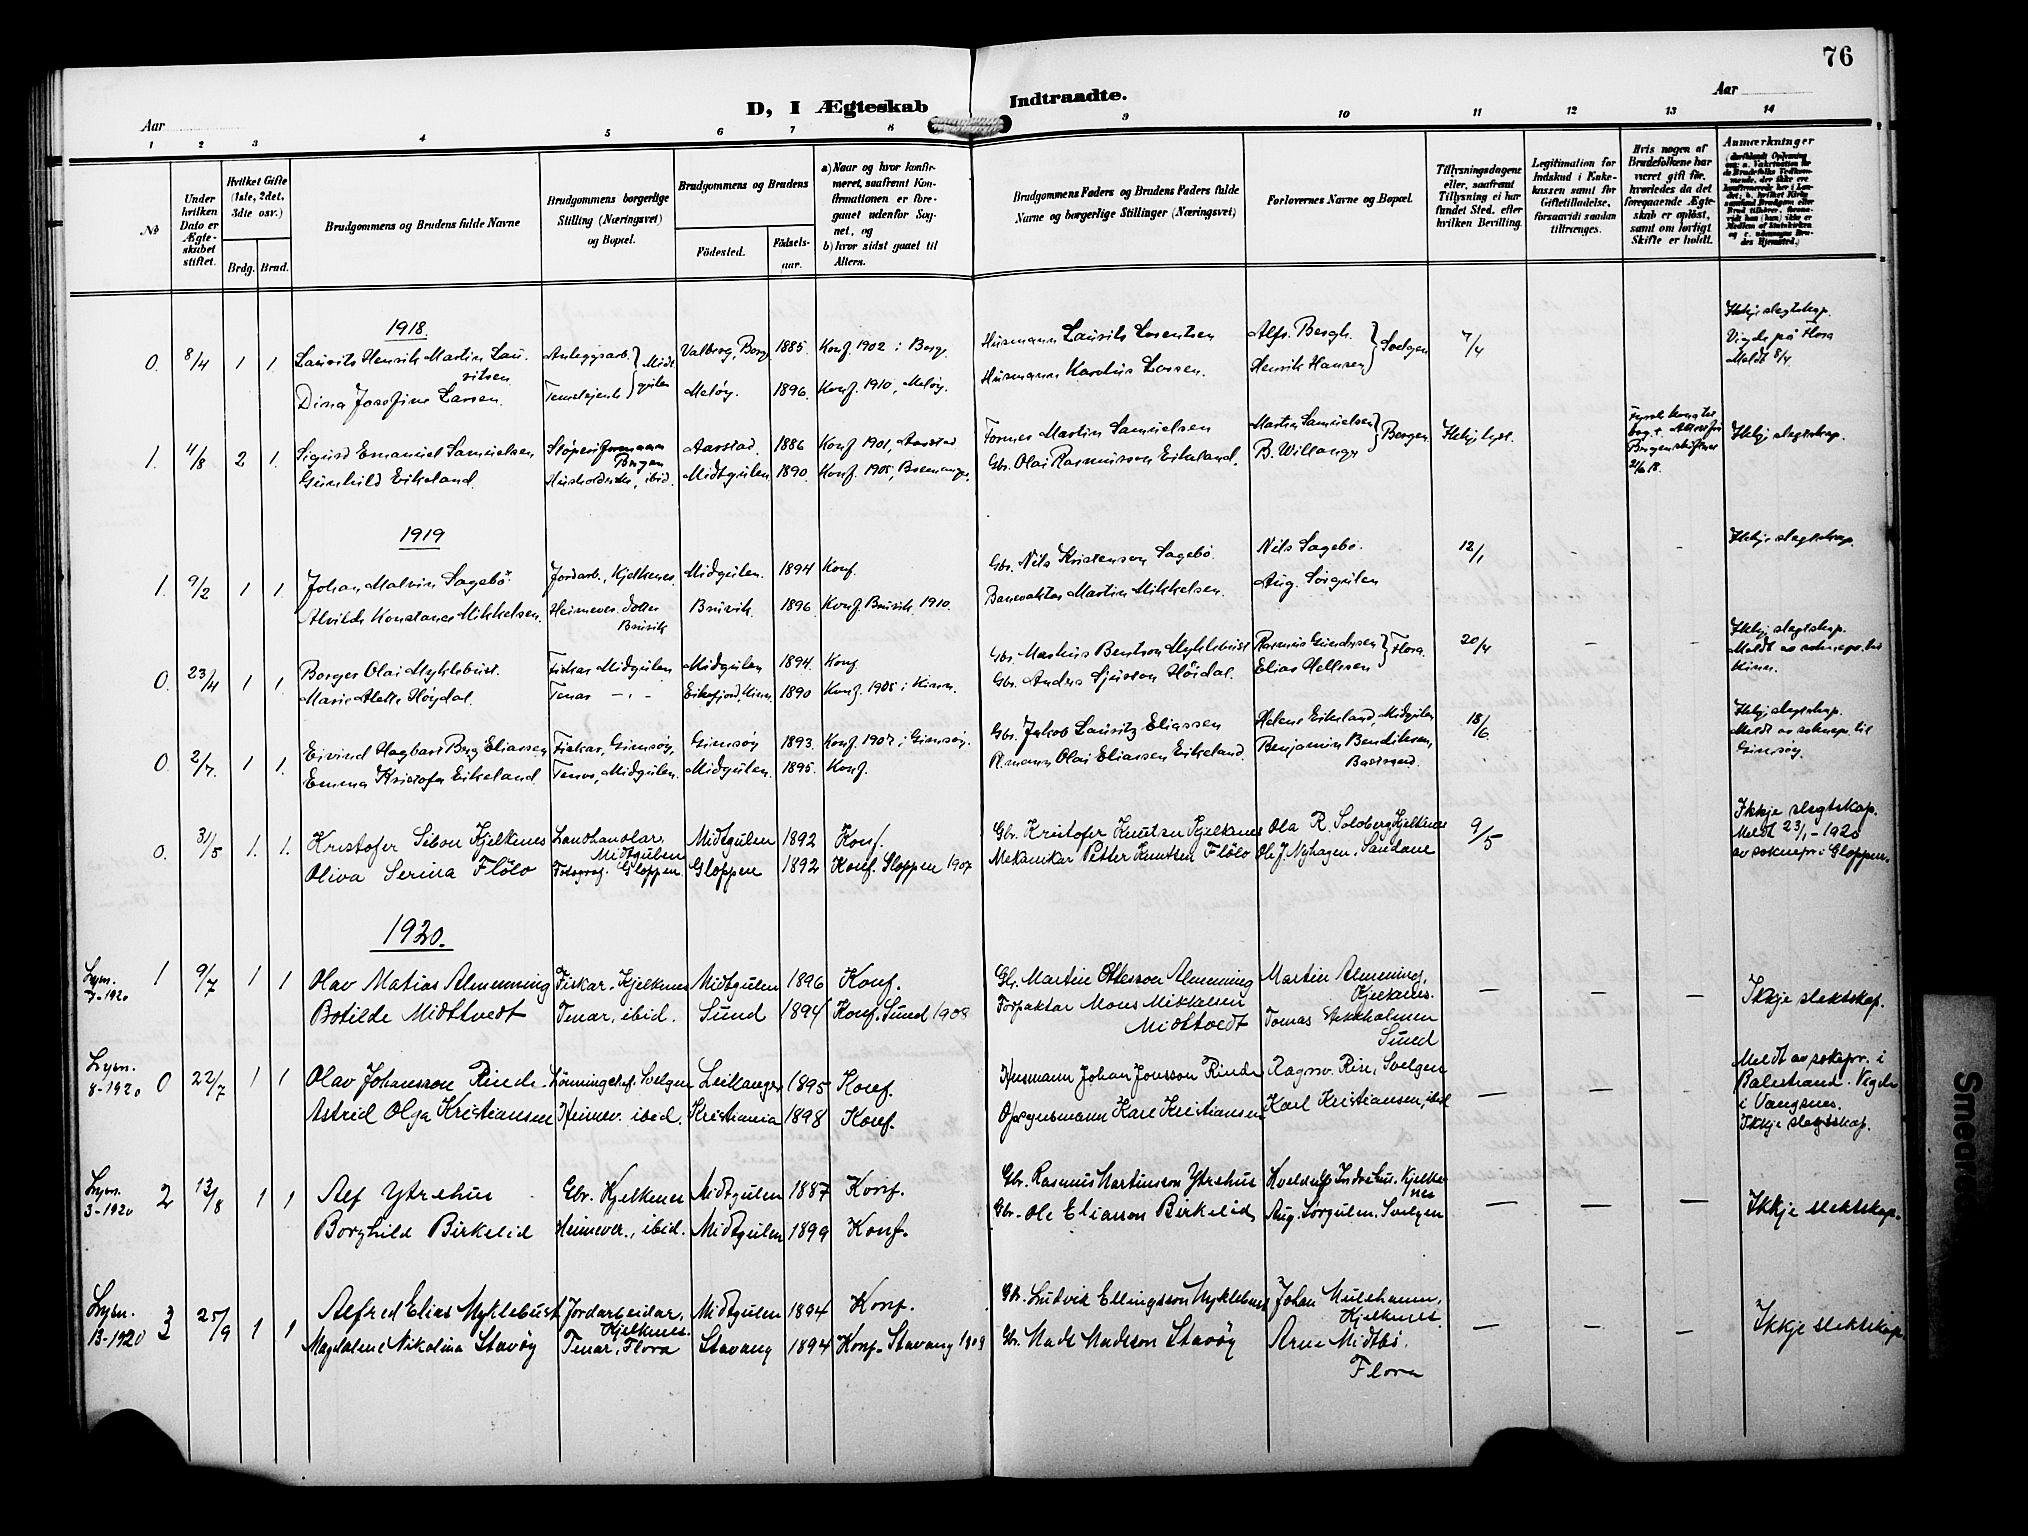 76
D, I Ægteskab Indtraadte.
Aar
Aar
1 2 3 4 5 6 7 8 9 10 11 12 13 14
No
Under hvilken Dato er Ægteskabet stiftet.
Hvilket Gifte (1ste, 2det, 3die osv.)
Brdg. Brud.
Brudgommens og Brudens fulde Navne
Brudgommens borgerlige Stilling (Næringsvei) og Bopæl.
Brudgommens og Brudens
Fødested. Fødselsaar.
a) Naar og hvor konfirmeret, saafremt Konfirmationen er foregaaet udenfor Sognet, og
b) hvor sidst gaaet til Alters.
Brudgommens Faders og Brudens Faders fulde Navne og borgerlige Stillinger (Næringsvei)
Forlovernes Navne og Bopæl.
Tillysningsdagene eller, saafremt Tillysning ei har fundet Sted, efter hvilken Bevilling.
Legitimation for Indskud i Enkekassen samt for Giftetilladelse, forsaavidt saadan tiltrænges.
Hvis nogen af Brudefolkene har været gift før, hvorledes da det foregaaende Ægteskab er opløst, samt om lovligt Skifte er holdt.
Anmærkninger
1918.
0. 8/4 1 1 Laurits Henrik Martin Lauritsen Anleggsarb. Midtgulen Valberg, Borg 1885. Konf. 1902 i Borg. Husmann Laurits Lorentsen Alfr. Bergh. Svelgen 7/4 Ikkje slegtskap. Vigde på Flora Meldt 8/4
Dina Josefine Larsen. Tenestejente Meløy. 1896. Konf. 1910, Meløy. Husmann Karolius Larsen. Henrik Hansen
1. 4/8 2 1. Sigurd Emanuel Samuelsen Støperiformann Bergen Aarstad. 1886 Konf. 1901, Aarstad Martin Samuelsen Martin Samuelsen Bergen Ikkje lyst. Ikkje slegtskap.
Gunhild Eikeland. Husholderske, ibid. Midtgulen 1890. Konf. 1905, Bremanger. Gbr. Olai Rasmusson Eikeland. B. Willanger
1919
1. 9/2 1 1. Johan Malvin Sagebø. Jordarb., Kjelkenes. Midgulen. 1894 Konf. Gbr. Nils Kristenson Sagebø. Nils Sagebø. 12/1 - - Ikkje slegtskap.
Alvilde Konstance Mikkelsen. Heimever. dotter Bruvik Bruvik 1896 Konf. Bruvik 1910. Banevakter Martin Mikkelsen. Aug. Sørgulen
0. 23/4 1 1. Borger Olai Myklebust. Fiskar Midgulen Midgulen 1894. Konf Gbr. Markus Bentson Myklebust Rasmus Gundersen Flora. 20/4 - - Ikkje slegtskap. Meldt av soknepr. til Kinn.
Marie Alette Høydal. Tenar -"- Eikefjord, Kinn. 1890 Konf. 1905 i Kinn. Gbr. Anders Sjursson Høidal. Elias Hellesen
0. 2/7. 1 1. Eivind Hagbart Berg Eliassen Fiskar, Gimsøy, Gimsøy 1893. Konf. 1907 i Gimsøy. Gbr. Jakob Lauritz Eliassen Helene Eikeland, Midgulen 18/6. Ikkje slegtskap. Meldt av soknepr. til Gimsøy.
Emma Kristofa Eikeland. Tenar, Midgulen. Midgulen. 1895. Konf. Olai Eliassen Eikeland. Benjamin Bendiksen,
0. 31/5 1. 1. Kristofer Selson Kjelkenes Landhandlar, Midtgulen Midtgulen 1892 Konf. Gbr. Kristofer Knutsen Kjelkenes Ola R. Solberg, Kjelkenes 9/5 Ikkje slegtskap. Meldt 23/1-1920 av soknepr. i Gloppen.
Oliva Serina Flölo Fotograf. Gloppen Gloppen 1892 Konf. Gloppen 1907 Mekanikar Petter Knutsen Flölo Ole J. Nyhagen, Sandane
1920.
1 9/7 1 1 Olav Matias Almenning Fiskar, Kjelkenes Midtgulen 1896 Konf. Gbr. Martin Ottesson Almenning Martin Almenning, Kjelkenes. - - - Ikkje slektskap.
7-1920 Botilde Midttvedt Tenar, ibid. Sund 1894 Konf. Sund 1908 Forpaktar Mons Mikkelsen Midttvedt Tomas Stekkholmen Sund
8-1920 0 22/7 1 1 Olav Johansson Rinde Lönningschef. Svelgen Leikanger 1895 Konf. Husmann Johan Jonsson Rinde Ragnv. Rin, Svelgen - - Meldt av sokepr. i Balestrand. Vigde i Vangsnes. Ikkje slegsskap.
Astrid Olga Kristiansen Heimev. ibid. Kristiania 1898 Konf. Opsynsmann Karl Kristiansen Karl Kristiansen, ibid
3-1920 2 13/8 1 1 Alf Ytrehus Gbr. Kjelkenes Midtgulen 1887 Konf. Gbr. Rasmus Martinsson Ytrehus Indrehus. Kjelkenes - - - Ikkje slektskap.
Borghild Birkelid Heimever., ibid. Midtgulen 1899 Konf. Gbr. Ole Eliasson Birkelid Aug. Sørgulen. Svelgen
13-1920 3 25/9 1 1 Alfred Elias Myklebust Jordarbeidar, Kjelkenes. Midtgulen 1894 Konf. Gbr. Ludvik Ellingsson Myklebust Johan Mulehamn, Kjelkenes. - - - Ikkje slektskap.
Magdalene Nikolina Stavöy Tenar, Flora Stavang 1894 Konf. Stavang 1909 Gbr. Mads Madsson Stavöy Arne Midtbö. Flora
Smearc